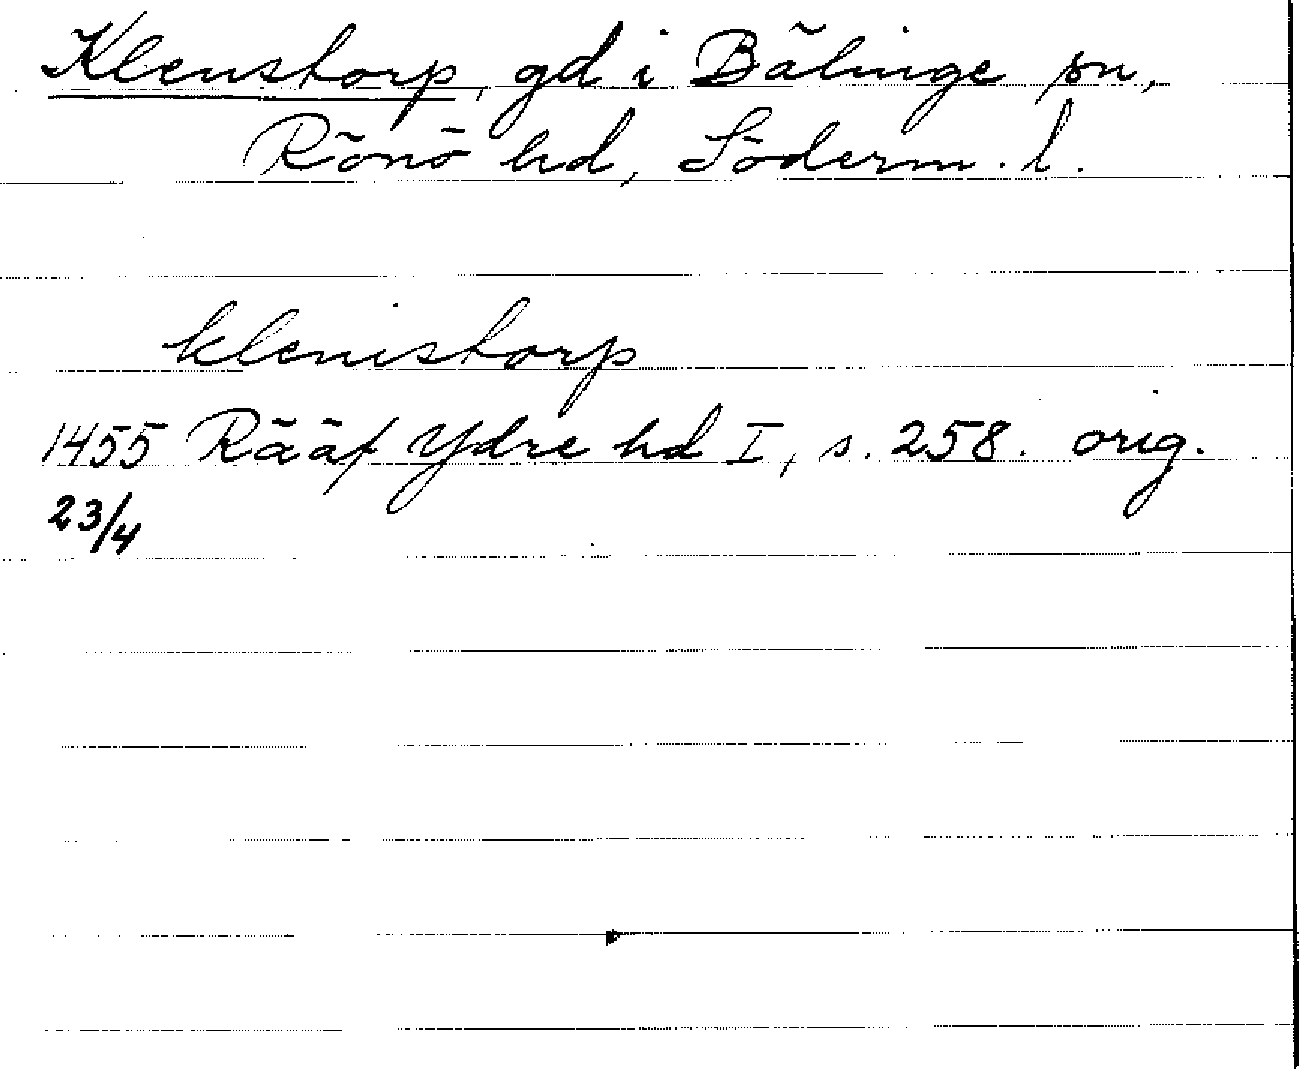 Klenstorp, gd i Bälinge sn,
Rönö hd, Söderm. l.
klenistorp
1455 Rääf Ydre hd I, s. 258. orig.
23/4